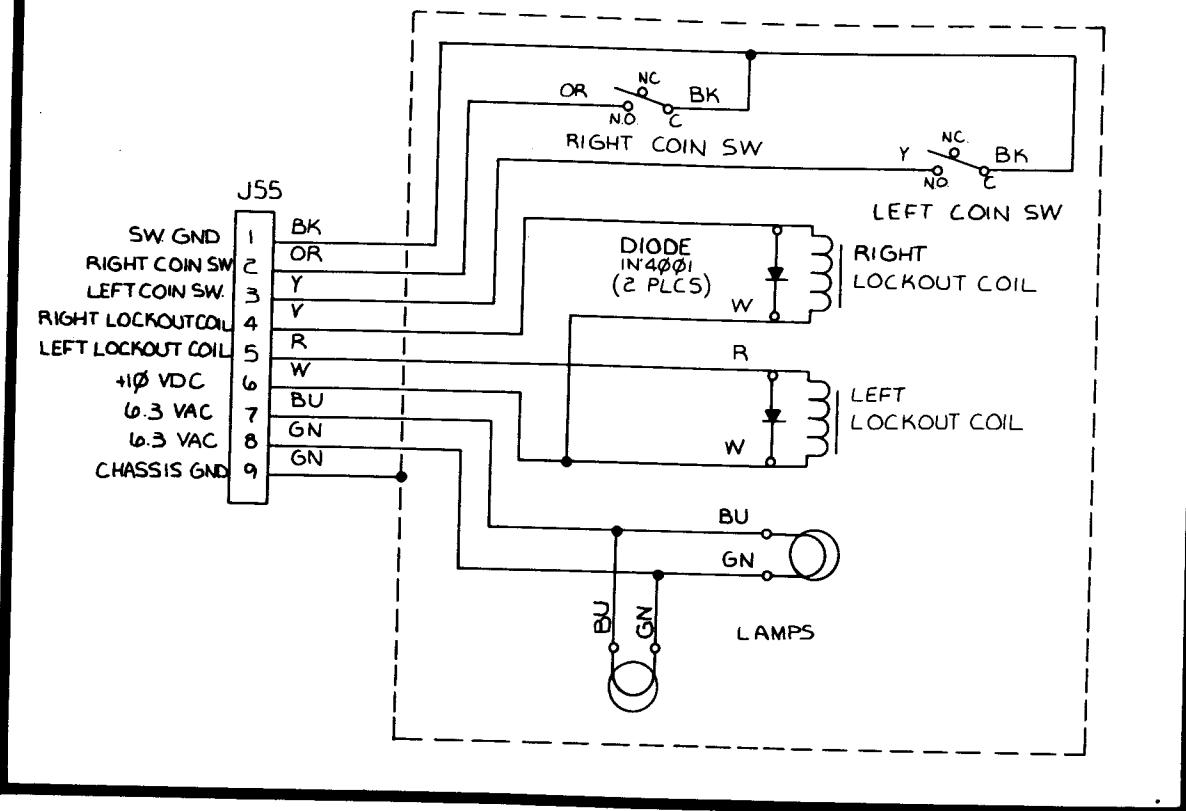 NC
OR
BK
N.O.
C
RIGHT COIN SW
NC.
Y
BK
NO.
C
LEFT COIN SW
J55
SW. GND 1 BK
RIGHT COIN SW 2 OR
LEFT COIN SW. 3 Y
RIGHT LOCKOUT COIL 4 V
LEFT LOCKOUT COIL 5 R
+1Ø VDC 6 W
6.3 VAC 7 BU
6.3 VAC 8 GN
CHASSIS GND 9 GN
DIODE
IN4ØØ1
(2 PLCS)
W
RIGHT
LOCKOUT COIL
R
W
LEFT
LOCKOUT COIL
BU
GN
BU
GN
LAMPS